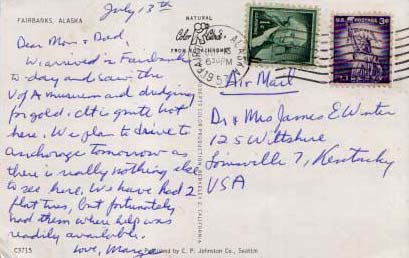 FAIRBANKS, ALASKA
July 13th
Dear Mom & Dad,
We arrived in Fairbanks
to-day and saw the
U of A museum and dredging
for gold. It is quite hot
here. We plan to drive to
Anchorage tomorrow as
there is really nothing else
to see here. We have had 2
flat tires, but fortunately
had them where help was
readily available.
Love, Marge
C3715
Published by C. P. Johnston Co., Seattle
NATURAL
Color Cards
FROM KODACHROME
COLOR PRODUCTION, BERKELEY 2, CALIFORNIA
ALASKA
630PM
195
U.S. POSTAGE
3¢
LIBERTY
Air Mail
Dr & Mrs James E Winter
125 Wiltshire
Louisville 7, Kentucky
USA